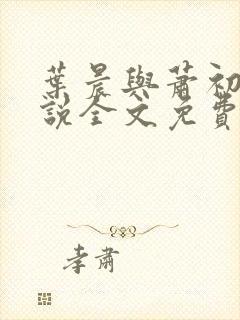 葉晨與蕭初
說全文免費
孝肅